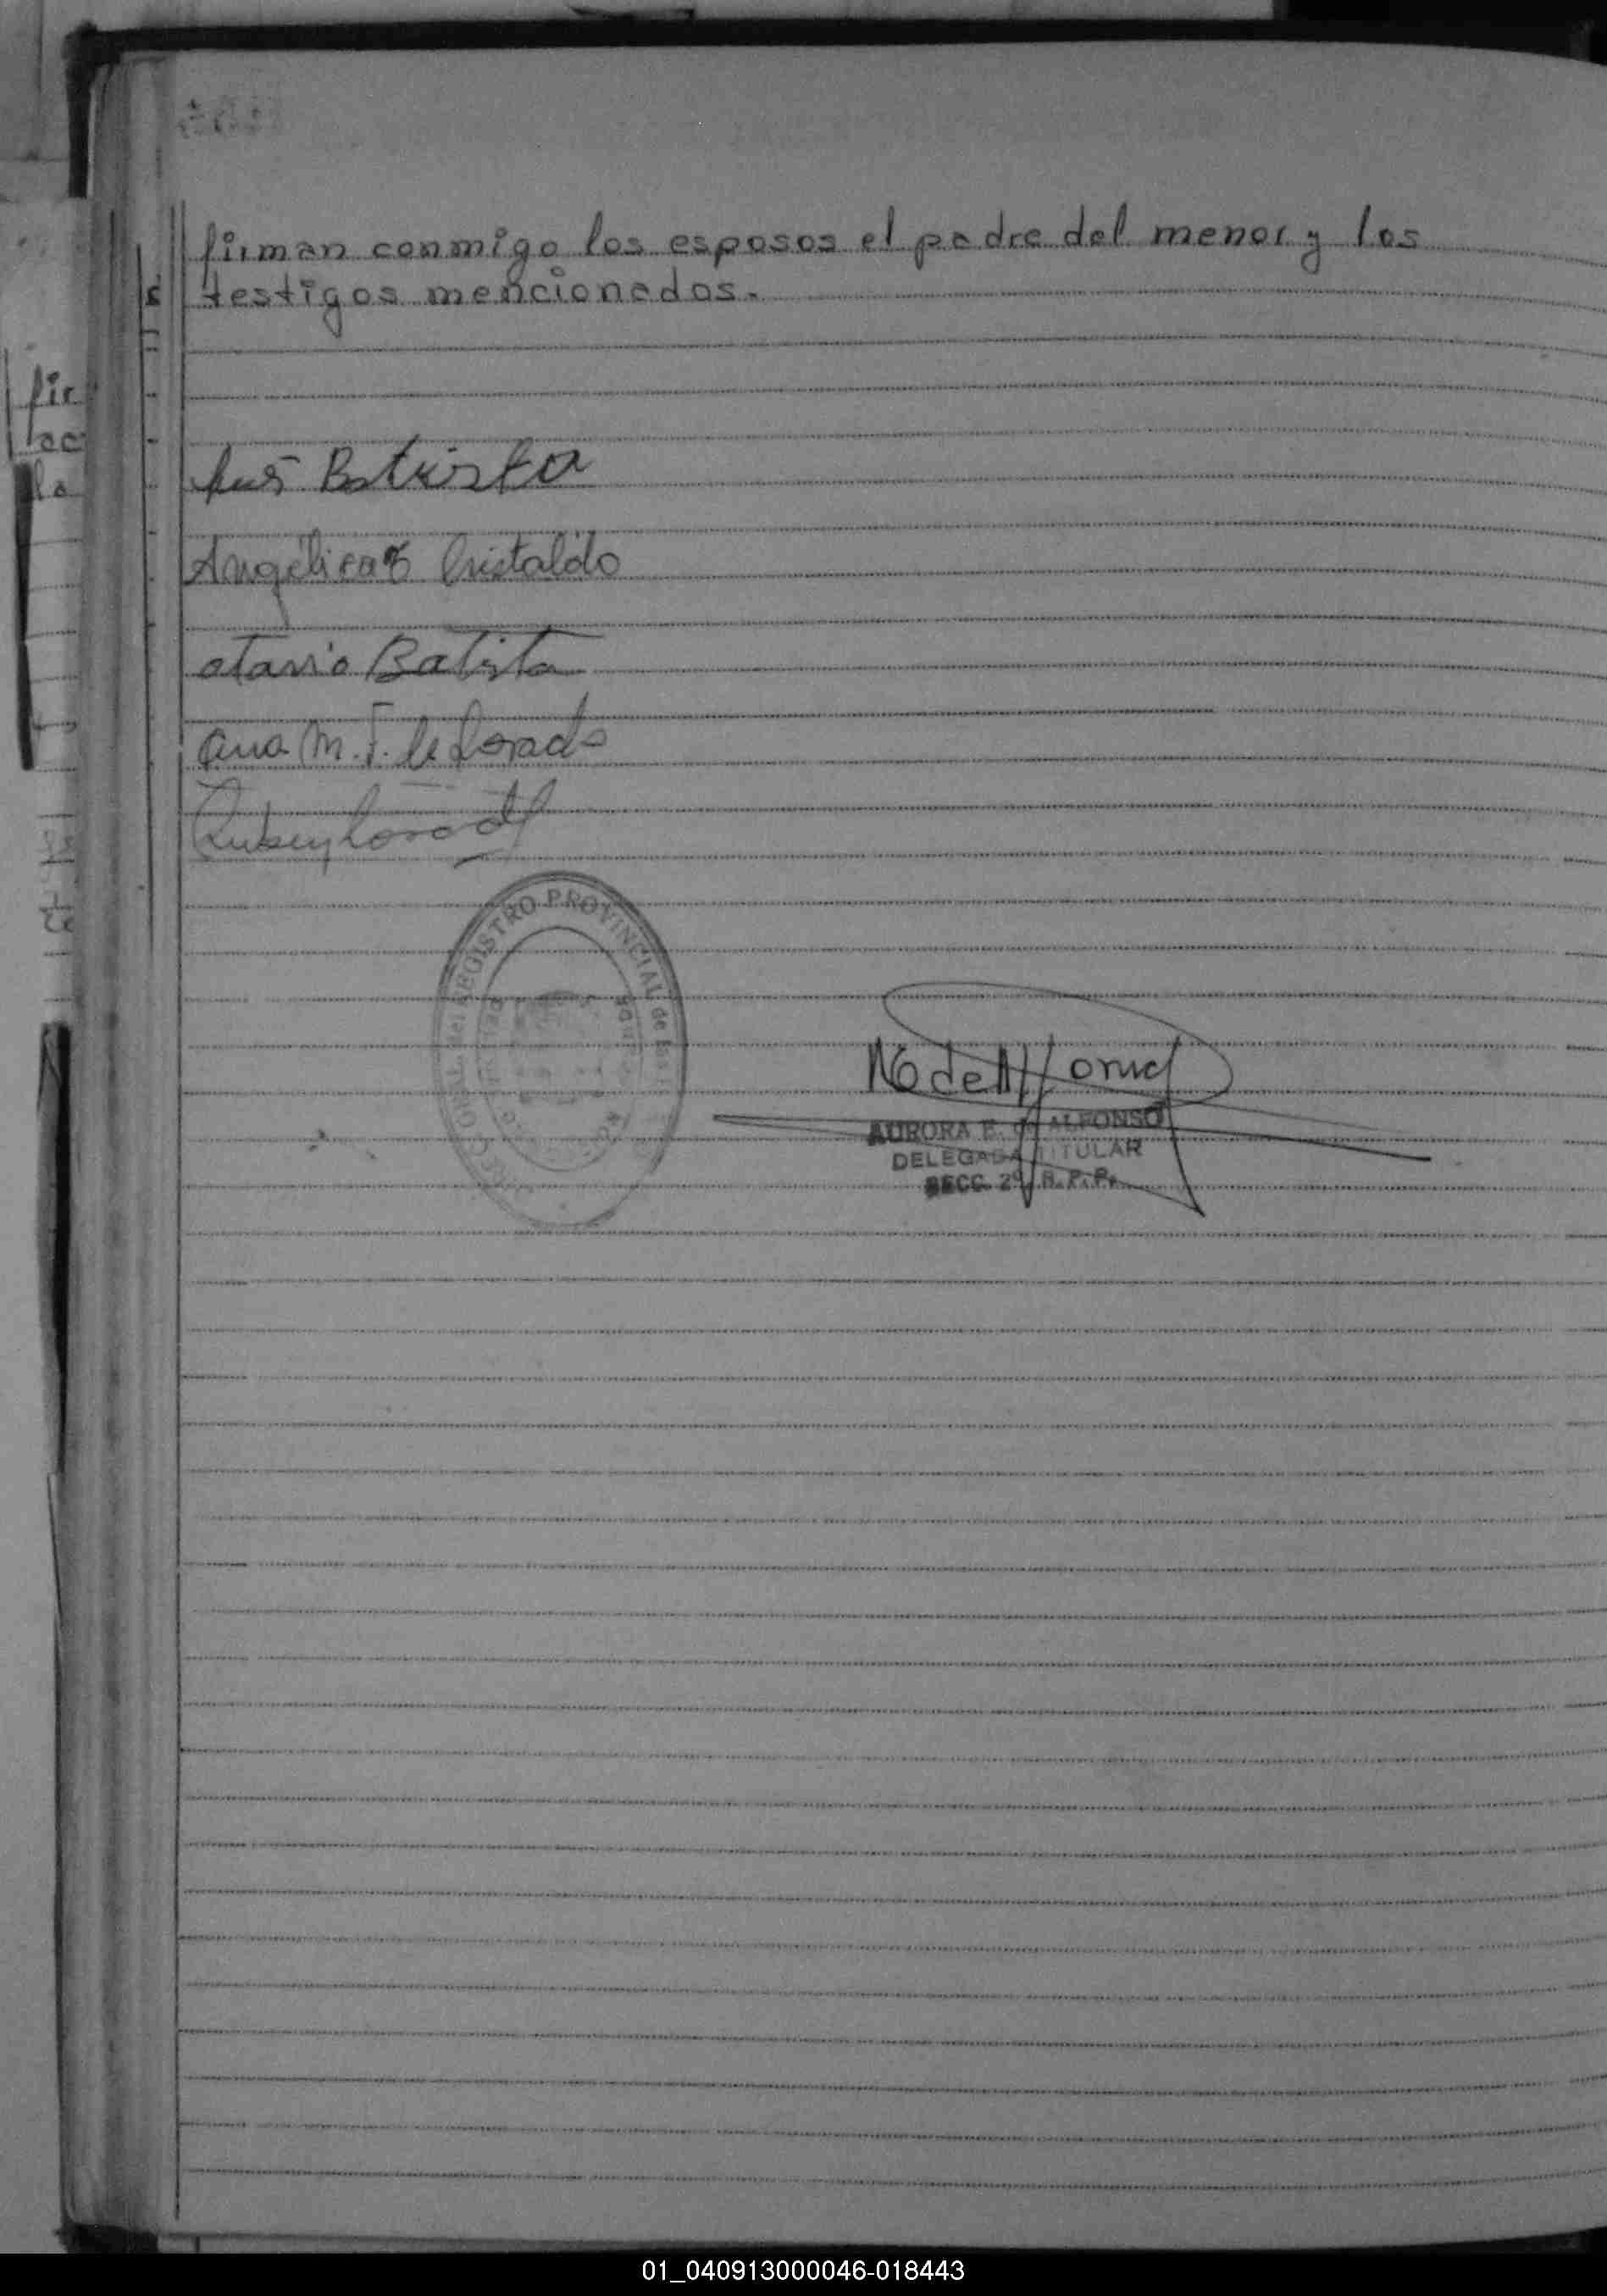 firman conmigo los esposos el padre del menor y los
testigos mencionados.
Luis Batista
Angélica Cristaldo
otavio Batista
Ana M. F. de Losada
Ruben Losada
REGISTRO PROVINCIAL de
AURORA E. de ALFONSO
DELEGADA TITULAR
SECC. 2º R. P. P.
fir
ac
la
01_040913000046-018443